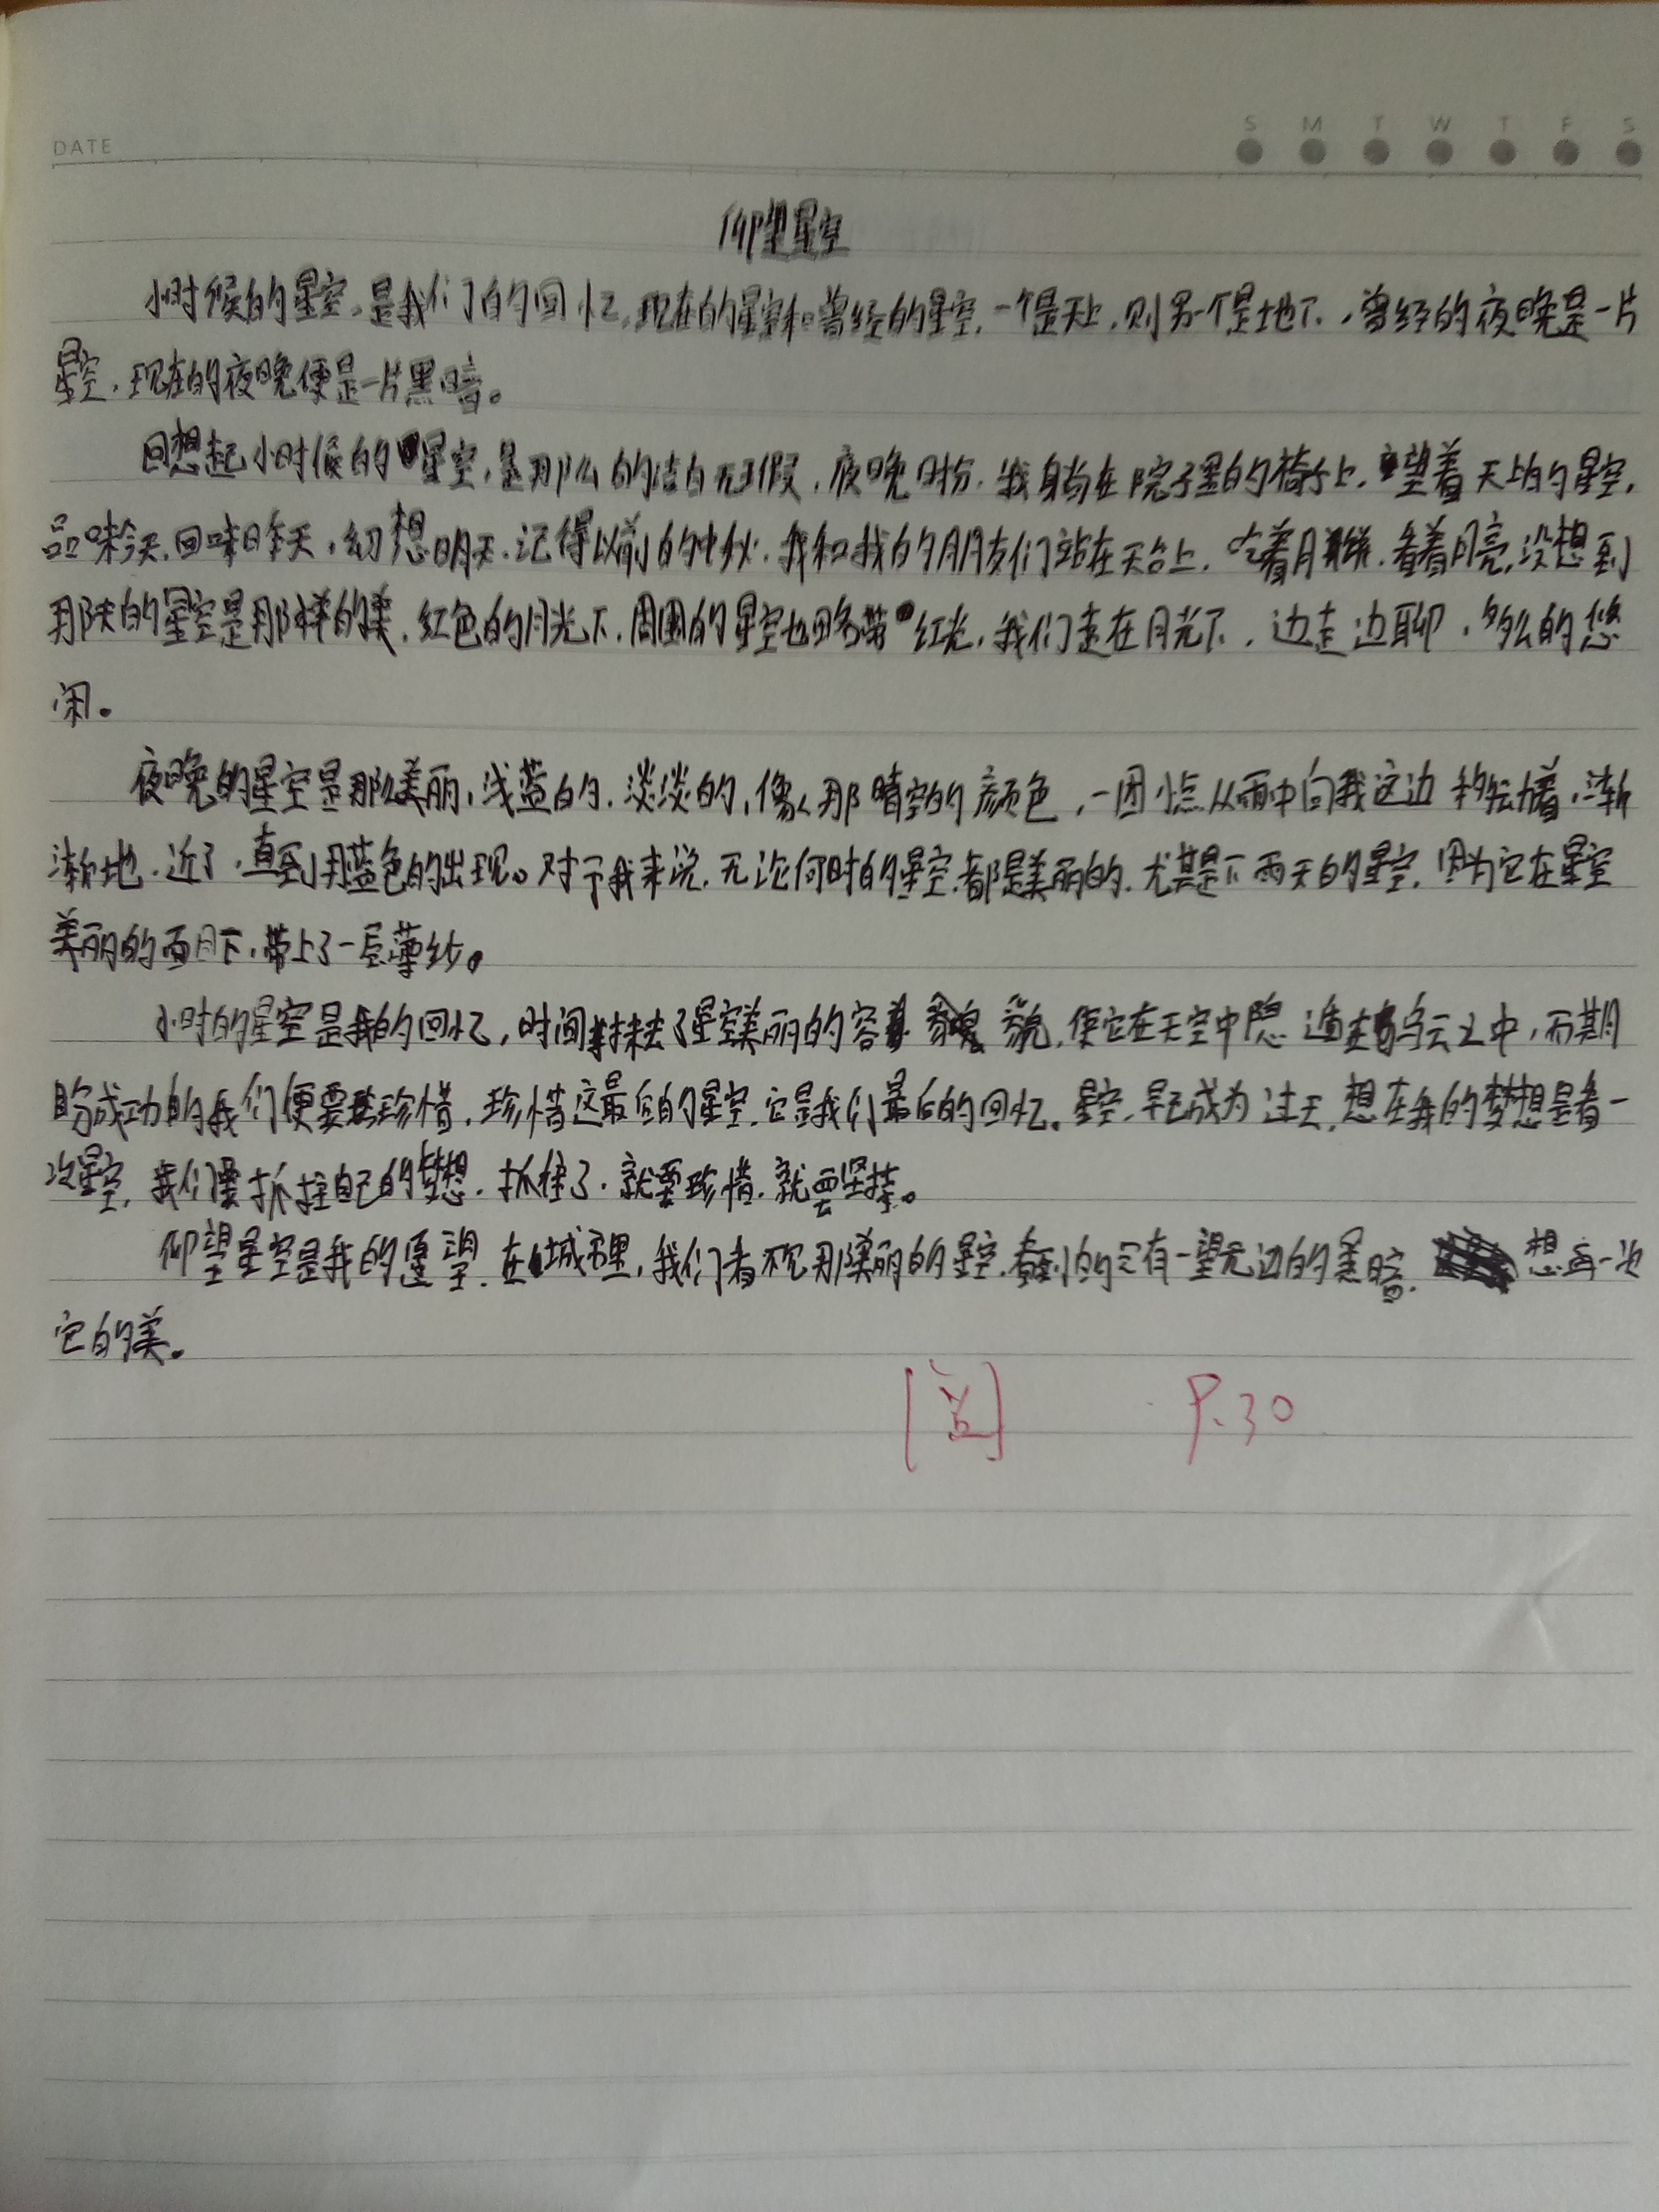 DATE
S M T W T F S
仰望星空
小时候的星空,是我们的回忆,现在的星空和曾经的星空,一个是天上,则另一个是地下,曾经的夜晚是一片
星空,现在的夜晚便是一片黑暗。
回想起小时候的星空,是那么的洁白无瑕,夜晚时分,我躺在院子里的椅子上,望着天上的星空,
品味今天,回味昨天,幻想明天,记得以前的中秋,我和我的朋友们站在天台上,吃着月饼,看着月亮,没想到
那天的星空是那样的美,红色的月光下,周围的星空也略带红光,我们走在月光下,边走边聊,多么的悠
闲。
夜晚的星空是那么美丽,浅蓝的,淡淡的,像那晴空的颜色,一团小点从雨中向我这边移动着,渐
渐地,近了,直到蓝色的出现。对于我来说,无论何时的星空,都是美丽的,尤其是下雨天的星空,因为它在星空
美丽的面具下,带上了一层薄纱。
小时的星空是我的回忆,时间抹去了星空美丽的容貌,使它在天空中隐 在乌云之中,而期
盼成功的我们便要珍惜,珍惜这最后的星空,它是我们最后的回忆。星空,早已成为过去,想在我的梦想是看一
次星空,我们要抓住自己的梦想,抓住了,就要珍惜,就要坚持。
仰望星空是我的愿望,在城市里,我们看不见那美丽的星空,看到的只有一望无边的黑暗,想再一次
它的美。
9.30